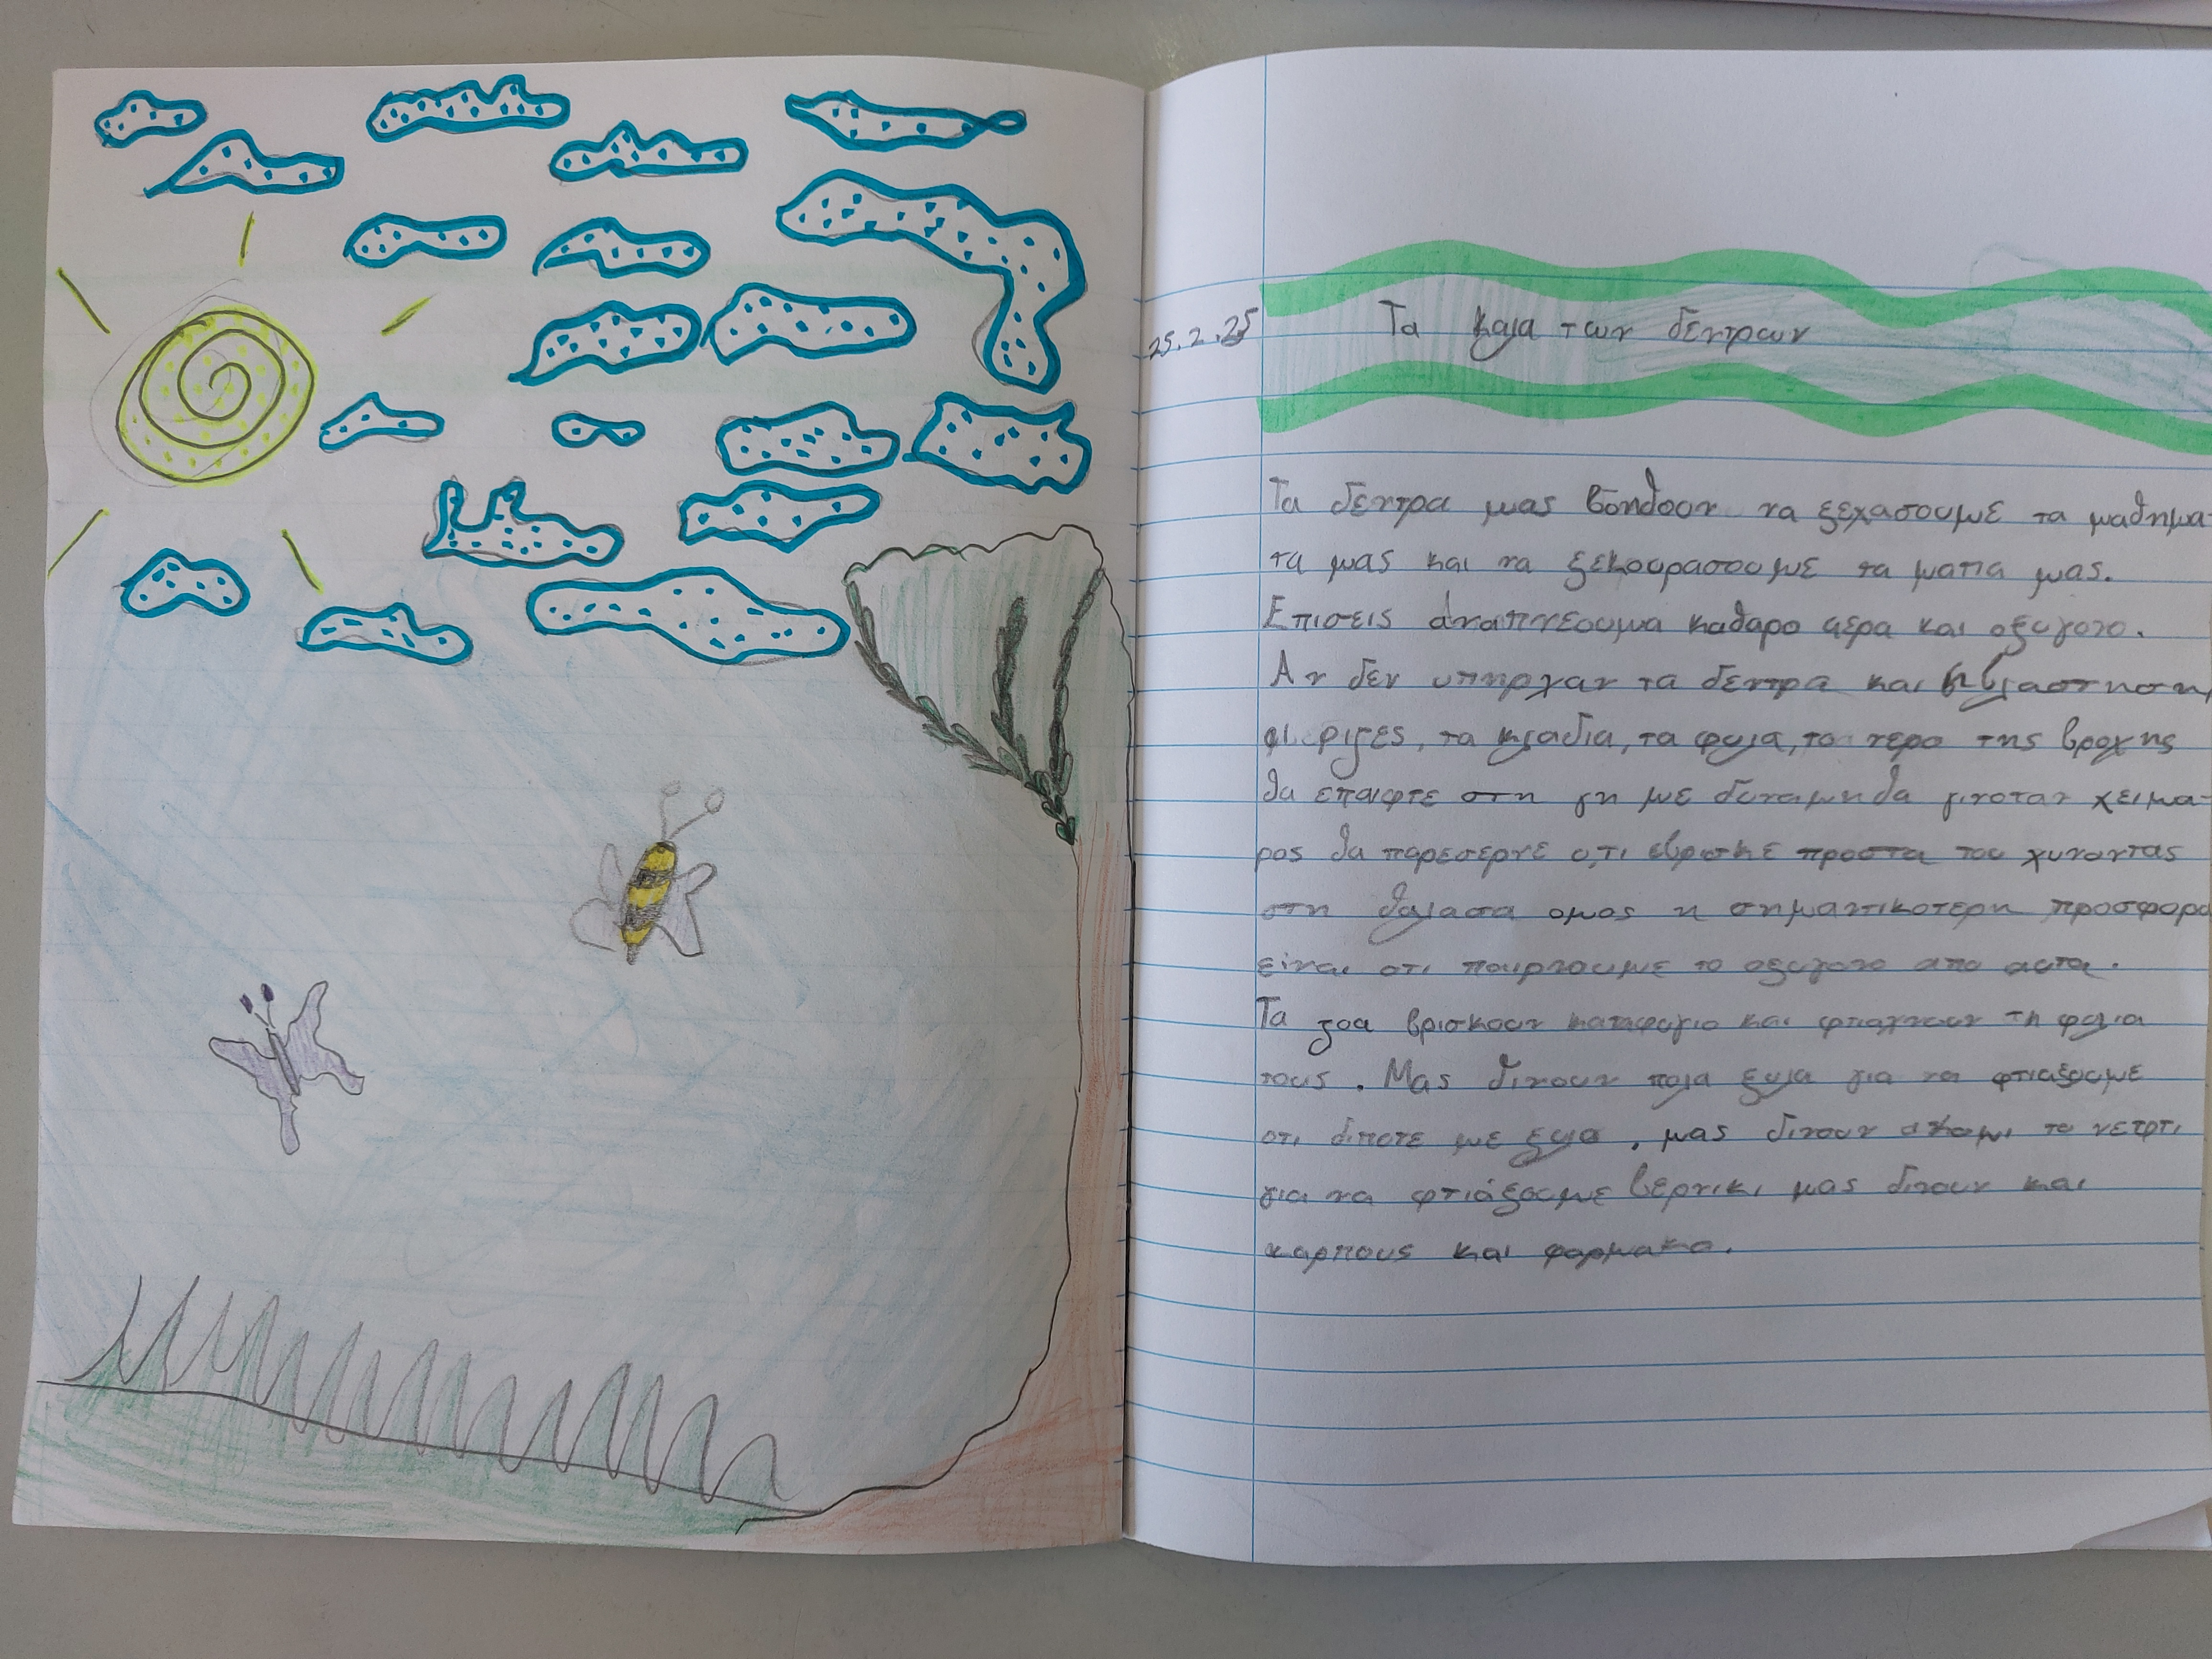 25.2.25
Τα καλα των δεντρων
Τα δεντρα μας βοηθουν να ξεχασουμε τα μαθημα-
τα μας και να ξεκουρασουμε τα ματια μας.
Επισεις αναπνεουμα καθαρο αερα και οξυγονο.
Αν δεν υπηρχαν τα δεντρα και η βλαστηση
οι ριζες, τα κλαδια, τα φυλα, το νερο της βροχης
θα επαιφτε στη γη με δυναμη θα γινοταν χειμα-
ρος θα παρεσερνε ο,τι εβρισκε προστα του χυνοντας
στη θαλασα ομος η σημαντικοτερη προσφορα
είναι οτι παιρνουμε το οξυγονο απο αυτα.
Τα ζοα βρισκουν καταφυγιο και φτιαχνουν τη φωλια
τους. Μας δινουν πολα ξυλα για να φτιαξουμε
οτι διποτε με ξυλο, μας δινουν ακομι το νετρτι
για να φτιάξουμε βερνικι μας δινουν και
καρπους και φαρμακα.